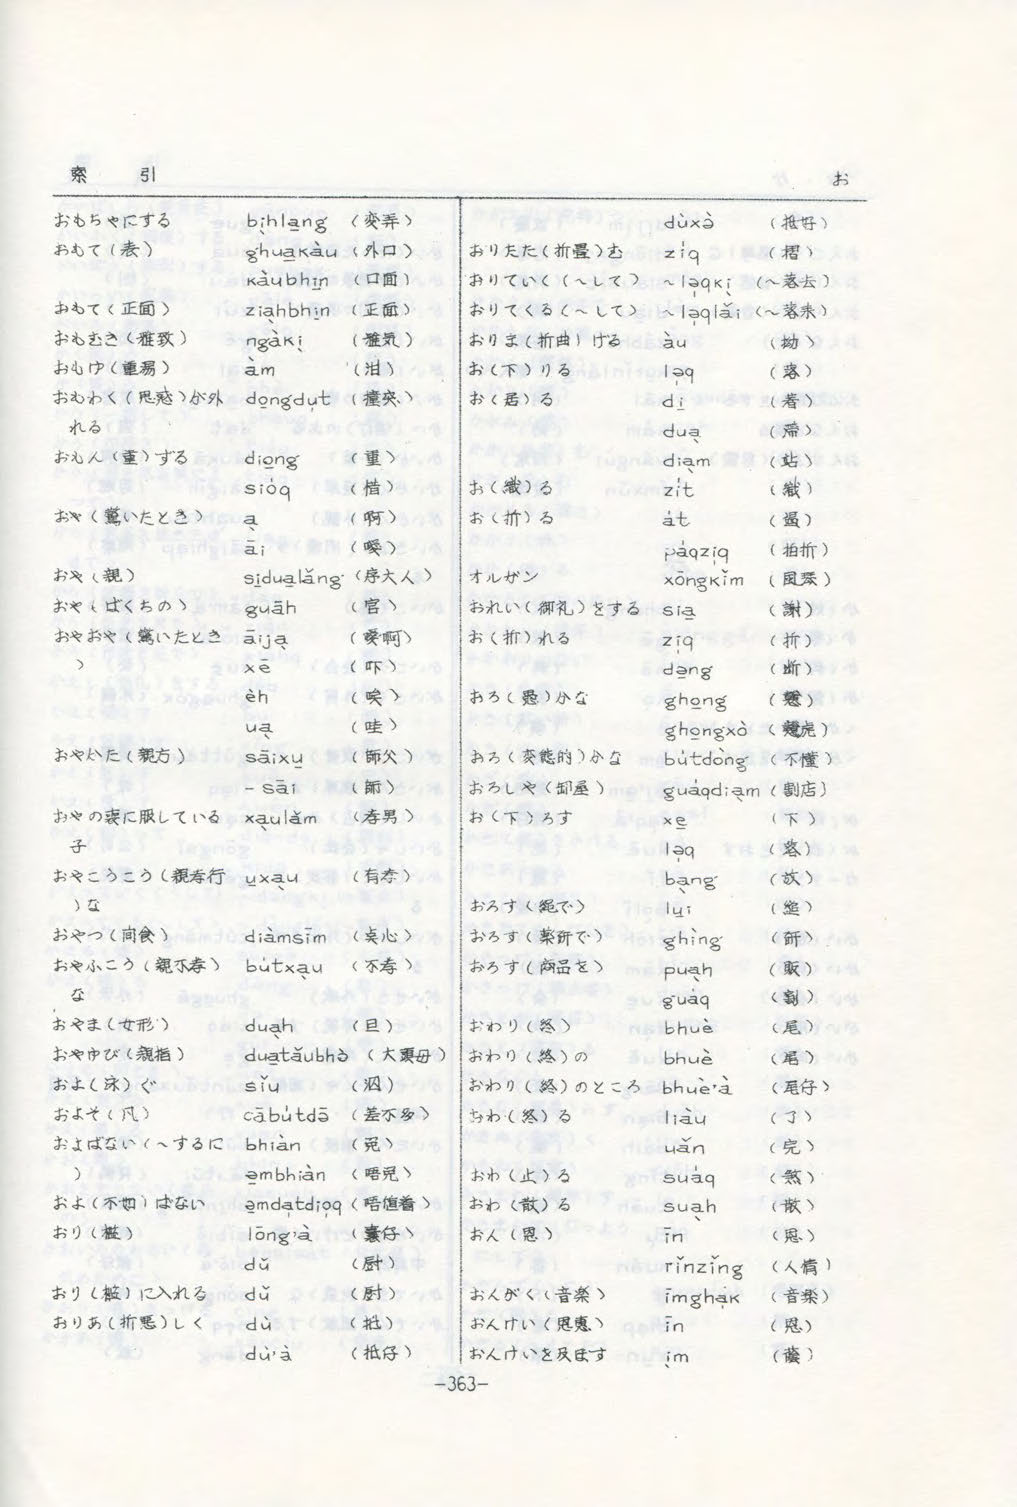 索 引 お
おもちゃにする bị̀hla̱ng (変弄)
おもて(表) ghua̱kàu (外口)
kàubhi̱n (口面)
おもて(正面) zia̱̣hbhi̱n (正面)
おもむき(雅致) ngàkị (雅気)
おもゆ(重湯) àm (泔)
おもわく(思惑)が外 do̱ngdụt (撞突)
れる
おもん(重)ずる dio̱ng (重)
sióq (惜)
おや(驚いたとき) ạ (啊)
āi (噯)
おや(親) si̱dua̱lǎng (序大人)
おや(ばくちの) guāh (官)
おやおや(驚いたとき āijạ (噯啊)
) xē (吓)
èh (唉)
uạ (哇)
おやかた(親方) sāixu̱ (師父)
-sāi (師)
おやの喪に服している xạulǎm (孝男)
子
おやこうこう(親孝行 u̱xạu (有孝)
)な
おやつ(間食) diàmsīm (点心)
おやふこう(親不孝) bútxạu (不孝)
な
おやま(女形) duạh (旦)
おやゆび(親指) dua̱tǎubhə̀ (大頭母)
およ(泳)ぐ sǐu (泅)
およそ(凡) cābútdə̄ (差不多)
およばない(~するに bhiàn (免)
) əmbhiàn (唔免)
およ(不如)ばない əmdạtdiọq (唔値着)
おり(檻) lōng'à (囊仔)
dǔ (廚)
おり(檻)に入れる dǔ (廚)
おりあ(折悪)しく dù (抵)
dù'à (抵仔)
dùxə̀ (抵好)
おりたた(折畳)む zíq (摺)
おりていく(~して) ~lə̣qkị (~落去)
おりてくる(~して) ~lə̣qlǎi (~落来)
おりま(折曲)げる àu (拗)
お(下)りる lə̣q (落)
お(居)る di̱ (著)
duạ (滞)
diạm (站)
お(織)る zít (織)
お(折)る át (遏)
páqzịq (拍折)
オルガン xōngkǐm (風琴)
おれい(御礼)をする sia̱ (謝)
お(折)れる zịq (折)
də̱ng (断)
おろ(愚)かな gho̱ng (戇)
gho̱ngxò (戇虎)
おろ(変態的)かな bútdòng (不懂)
おろしや(卸屋) guáqdiạm (割店)
お(下)ろす xe̱ (下)
lə̣q (落)
bạng (放)
おろす(縄で) lụi (縋)
おろす(薬研で) ghìng (研)
おろす(商品を) puạh (販)
guáq (割)
おわり(終) bhuè (尾)
おわり(終)の bhuè (尾)
おわり(終)のところ bhuè'à (尾仔)
おわ(終)る liàu (了)
uǎn (完)
おわ(止)る suáq (煞)
おわ(散)る suạh (散)
おん(恩) īn (恩)
rǐnzǐng (人情)
おんがく(音楽) īmghạk (音楽)
おんけい(恩恵) īn (恩)
おんけいを及ぼす ịm (蔭)
-363-